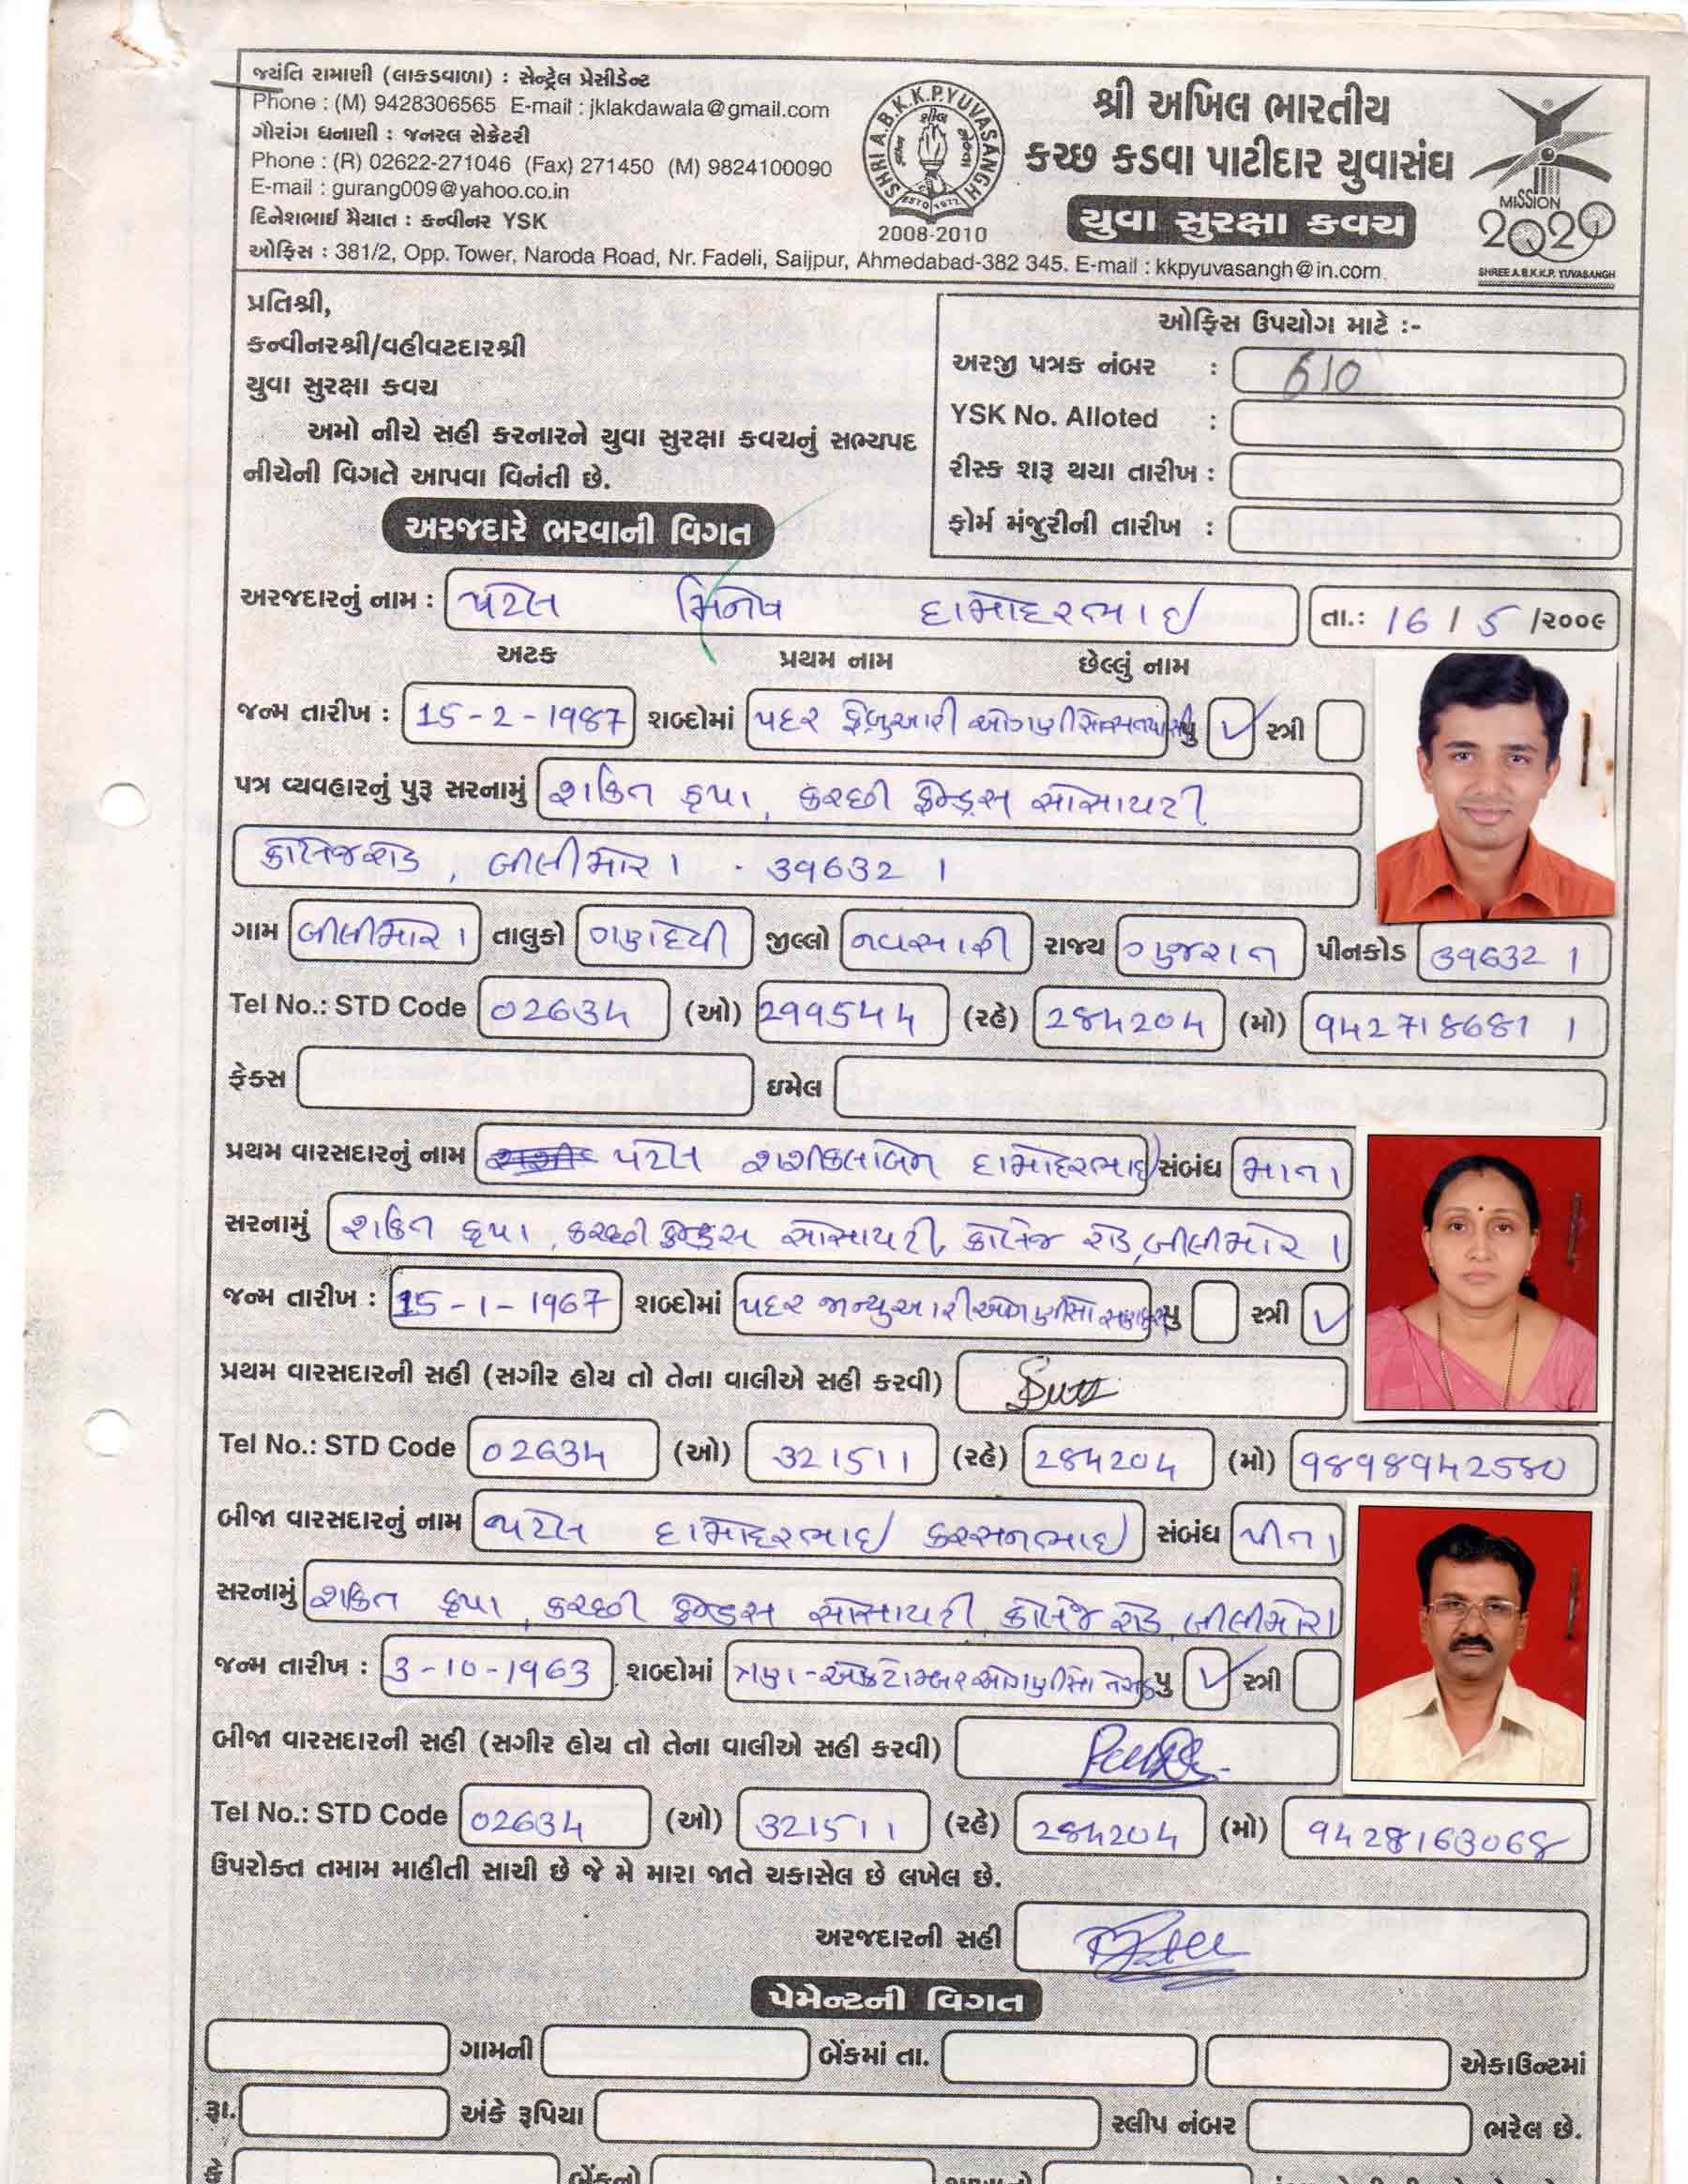 જયંતિ રામાણી (લાકડાવાળા) : સેન્ટ્રેલ પ્રેસીડેન્ટ
Phone : (M) 9428306565 E-mail : jklakdawala@gmail.com
ગૌરાંગ ધનાણી : જનરલ સેક્રેટરી
Phone : (R) 02622-271046 (Fax) 271450 (M) 9824100090
E-mail : gurang009@yahoo.co.in
દિનેશભાઈ મૈયાત : કન્વીનર YSK
ઓફિસ : 381/2, Opp. Tower, Naroda Road, Nr. Fadeli, Saijpur, Ahmedabad-382 345. E-mail : kkpyuvasangh@in.com
SHRI A.B.K.K.P. YUVASANGH
ESTD 1972
2008-2010
શ્રી અખિલ ભારતીય
કચ્છ કડવા પાટીદાર યુવાસંઘ
યુવા સુરક્ષા કવચ
MISSION
2020
SHREE A.B.K.K.P. YUVASANGH
પ્રતિશ્રી,
કન્વીનરશ્રી/વહીવટદારશ્રી
યુવા સુરક્ષા કવચ
અમો નીચે સહી કરનારને યુવા સુરક્ષા કવચનું સભ્યપદ
નીચેની વિગતે આપવા વિનંતી છે.
ઓફિસ ઉપયોગ માટે :-
અરજી પત્રક નંબર : 610
YSK No. Alloted :
રીસ્ક શરૂ થયા તારીખ :
ફોર્મ મંજુરીની તારીખ :
અરજદારે ભરવાની વિગત
અરજદારનું નામ : પટેલ મિનેષ દામોદરભાઈ તા.: 16 / 5 /૨૦૦૯
અટક પ્રથમ નામ છેલ્લું નામ
જન્મ તારીખ : 15-2-1987 શબ્દોમાં પંદર ફેબ્રુઆરી પુ ✓ સ્ત્રી
પત્ર વ્યવહારનું પુરૂ સરનામું શક્તિ કૃપા, કચ્છી ફ્રેન્ડ્સ સોસાયટી
કોલેજ રોડ, બીલીમોરા - 396321
ગામ બીલીમોરા તાલુકો ગણદેવી જીલ્લો નવસારી રાજ્ય ગુજરાત પીનકોડ 396321
Tel No.: STD Code 02634 (ઓ) 299544 (રહે) 284204 (મો) 9427186811
ફેક્સ ઇમેલ
પ્રથમ વારસદારનું નામ પટેલ શશીકલાબેન દામોદરભાઈ સંબંધ માતા
સરનામું શક્તિ કૃપા, કચ્છી ફ્રેન્ડ્સ સોસાયટી, કોલેજ રોડ, બીલીમોરા
જન્મ તારીખ : 15-1-1967 શબ્દોમાં પંદર જાન્યુઆરી પુ સ્ત્રી ✓
પ્રથમ વારસદારની સહી (સગીર હોય તો તેના વાલીએ સહી કરવી)
Tel No.: STD Code 02634 (ઓ) 321511 (રહે) 284204 (મો) 9898942580
બીજા વારસદારનું નામ પટેલ દામોદરભાઈ કરસનભાઈ સંબંધ પીતા
સરનામું શક્તિ કૃપા, કચ્છી ફ્રેન્ડસ સોસાયટી, કોલેજ રોડ, બીલીમોરા
જન્મ તારીખ : 3-10-1963 શબ્દોમાં ત્રણ - ઓક્ટોમ્બર ઓગણીસો ત્રેસઠ પુ ✓ સ્ત્રી
બીજા વારસદારની સહી (સગીર હોય તો તેના વાલીએ સહી કરવી)
Tel No.: STD Code 02634 (ઓ) 321511 (રહે) 284204 (મો) 9428163068
ઉપરોક્ત તમામ માહીતી સાચી છે જે મે મારા જાતે ચકાસેલ છે લખેલ છે.
અરજદારની સહી
પેમેન્ટની વિગત
ગામની બેંકમાં તા. એકાઉન્ટમાં
રૂા. અંકે રૂપિયા સ્લીપ નંબર ભરેલ છે.
બેંકનો